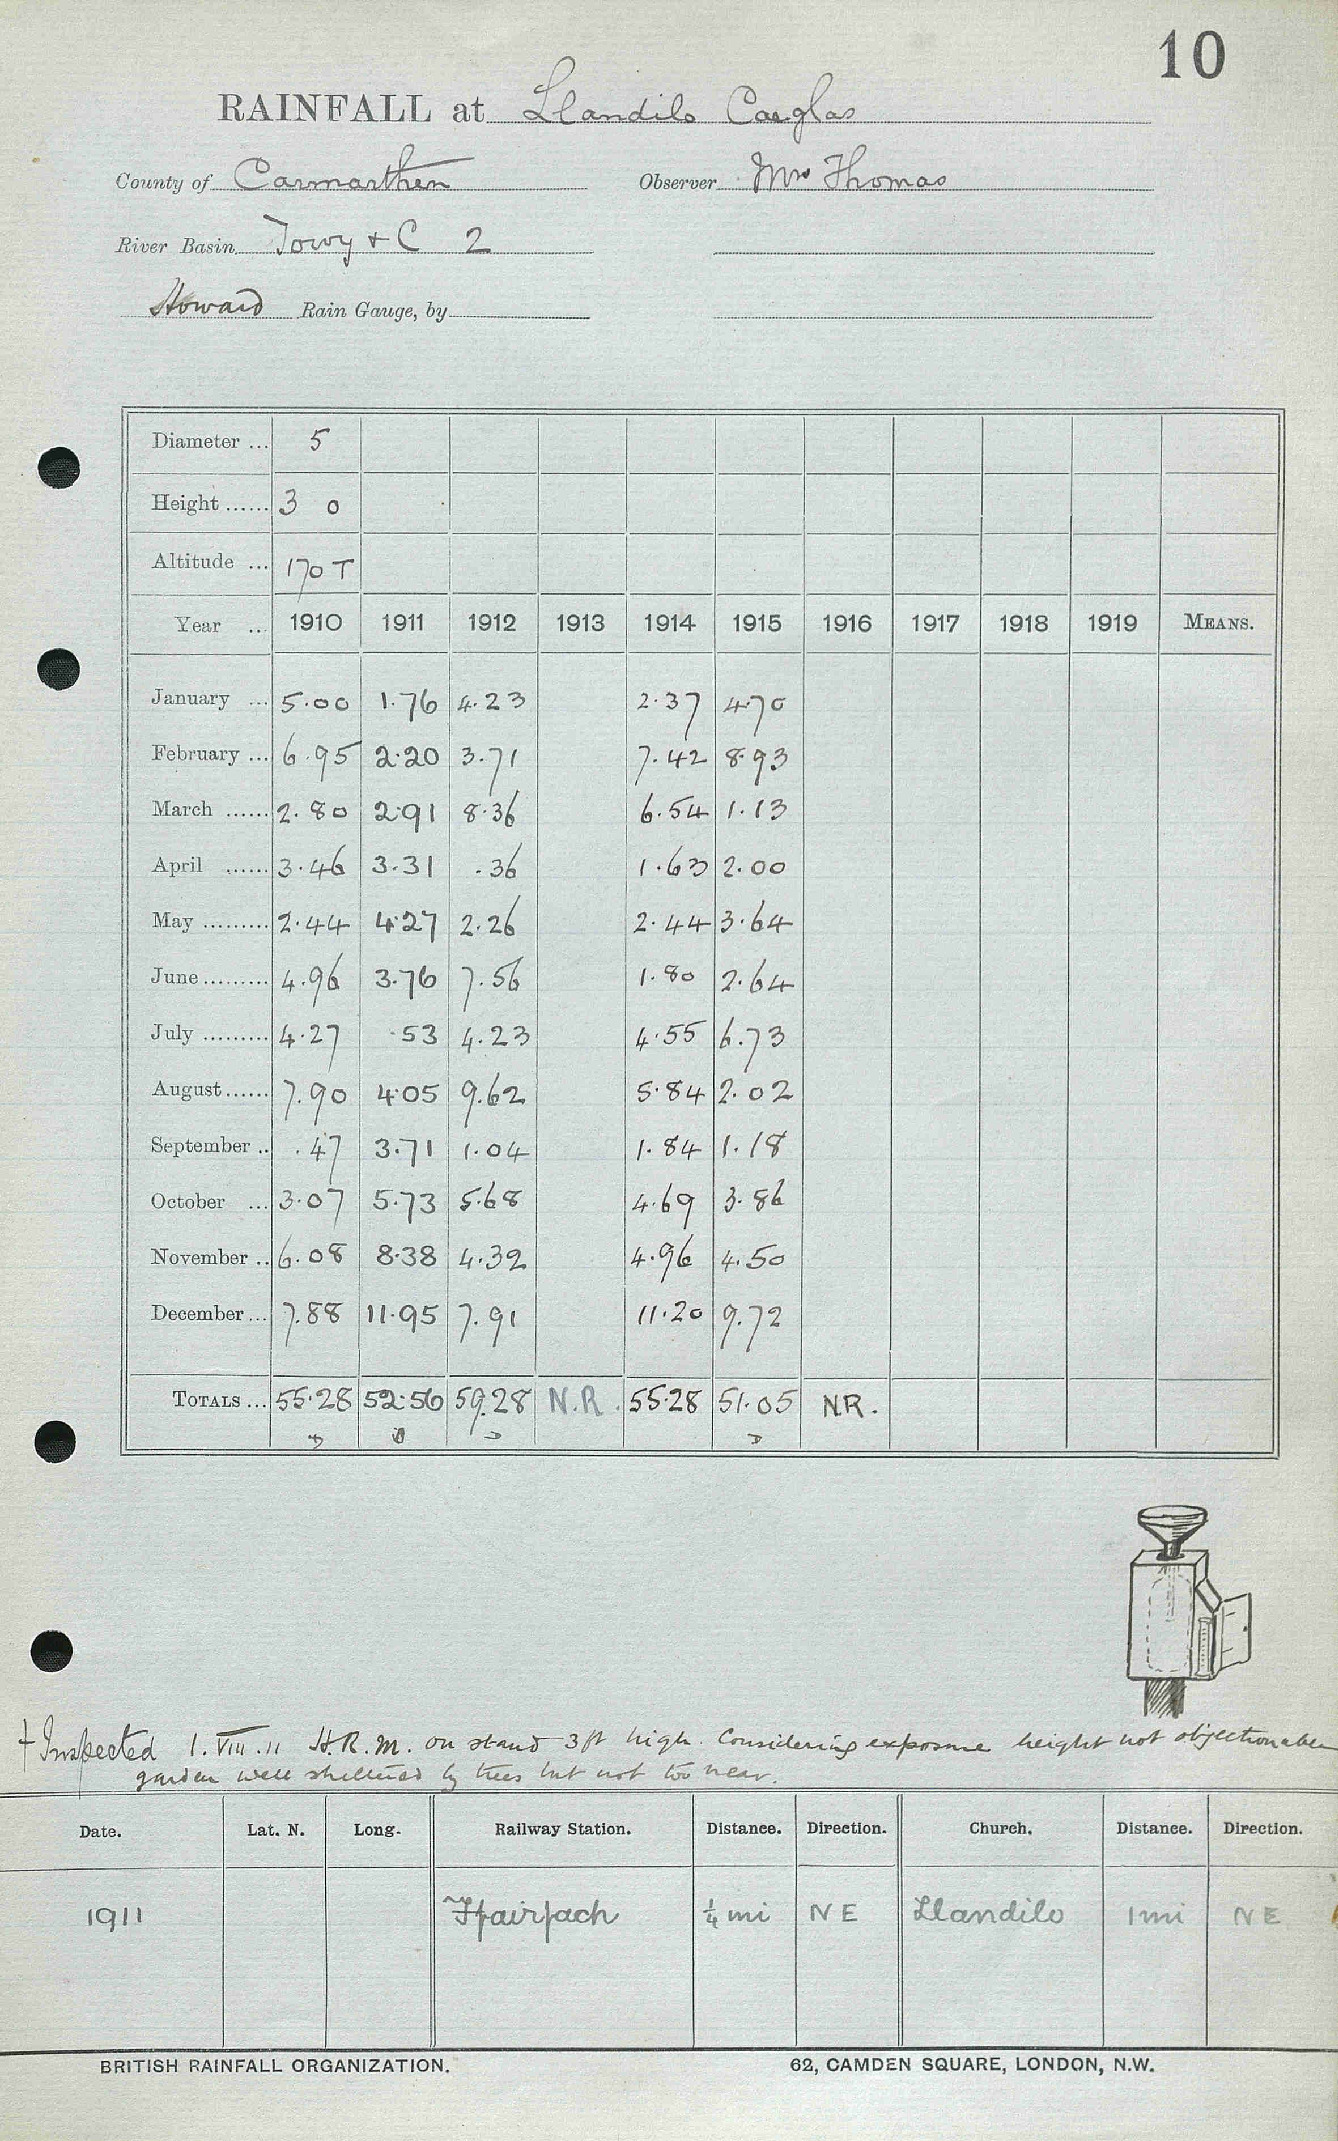 10
RAINFALL at Llandilo Caeglas
County of Carmarthen Observer Mrs Thomas
River Basin Towy & C 2
Howard Rain Gauge, by
Diameter ... 5
Height ...... 3 0
Altitude ... 170 T
Year ... 1910 1911 1912 1913 1914 1915 1916 1917 1918 1919 MEANS.
January ... 5.00 1.76 4.23 2.37 4.70
February ... 6.95 2.20 3.71 7.42 8.93
March ...... 2.80 2.91 8.36 6.54 1.13
April ...... 3.46 3.31 .36 1.63 2.00
May ......... 2.44 4.27 2.26 2.44 3.64
June ......... 4.96 3.76 7.56 1.80 2.64
July ......... 4.27 .53 4.23 4.55 6.73
August ...... 7.90 4.05 9.62 5.84 2.02
September .. .47 3.71 1.04 1.84 1.18
October ... 3.07 5.73 5.68 4.69 3.86
November .. 6.08 8.38 4.32 4.96 4.50
December ... 7.88 11.95 7.91 11.20 9.72
TOTALS ... 55.28 52.56 59.28 N.R. 55.28 51.05 NR.
† Inspected 1.VIII.11 H.R.M. on stand 3ft high. Considering exposure height not objectionable
garden well sheltered by trees but not too near.
Date. Lat. N. Long. Railway Station. Distance. Direction. Church. Distance. Direction.
1911 Ffairfach ¼ mi NE Llandilo 1 mi NE
BRITISH RAINFALL ORGANIZATION. 62, CAMDEN SQUARE, LONDON, N.W.